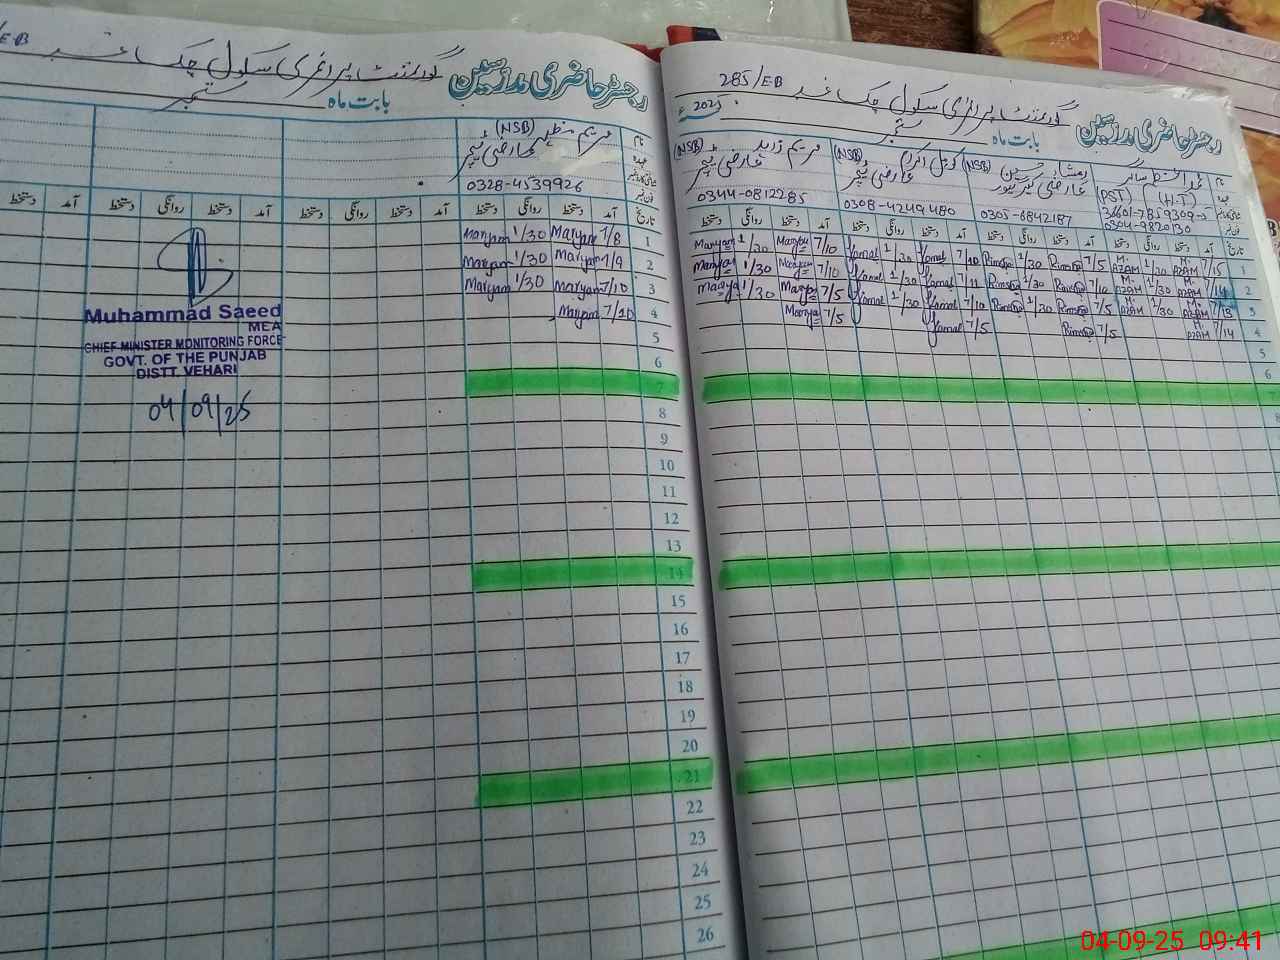 رجسٹر حاضری مدرسین گورنمنٹ پرائمری سکول چک نمبر 285/EB
بابت ماہ ستمبر 2025ء
نام
عہدہ
(PST) (H.T)
36601-7859309-5
0304-9820130
رمشاء حسین (NSB)
0305-6842187
کومل اکرام (NSB)
عارضی ٹیچر
0308-4249480
مریم زاہد (NSB)
عارضی ٹیچر
0344-0812285
تاریخ آمد دستخط روانگی دستخط آمد دستخط روانگی دستخط آمد دستخط روانگی دستخط آمد دستخط روانگی دستخط
1 7/15 M. AZAM 1/30 M. AZAM 7/5 Rimsha 1/30 Rimsha 7/10 Komal 1/30 Komal 7/10 Maryam 1/30 Maryam
2 7/14 M. AZAM 1/30 M. AZAM 7/10 Rimsha 1/30 Rimsha 7/11 Komal 1/30 Komal 7/10 Maryam 1/30 Maryam
3 7/13 M. AZAM 1/30 M. AZAM 7/5 Rimsha 1/30 Rimsha 7/10 Komal 1/30 Komal 7/5 Maryam 1/30 Maryam
4 7/14 M. AZAM 7/5 Rimsha 7/5 Komal 7/5 Maryam
5
6
7
8
رجسٹر حاضری مدرسین گورنمنٹ پرائمری سکول چک نمبر /EB
بابت ماہ ستمبر
نام
عہدہ
مریم (NSB)
عارضی ٹیچر
0328-4539926
تاریخ آمد دستخط روانگی دستخط آمد دستخط روانگی دستخط آمد دستخط روانگی دستخط آمد دستخط
1 7/8 Maryam 1/30 Maryam
2 7/9 Maryam 1/30 Maryam
3 7/10 Maryam 1/30 Maryam
4 7/10 Maryam
5
6
7
8
9
10
11
12
13
14
15
16
17
18
19
20
21
22
23
24
25
26
Muhammad Saeed
MEA
CHIEF MINISTER MONITORING FORCE
GOVT. OF THE PUNJAB
DISTT. VEHARI
04/09/25
04-09-25 09:41